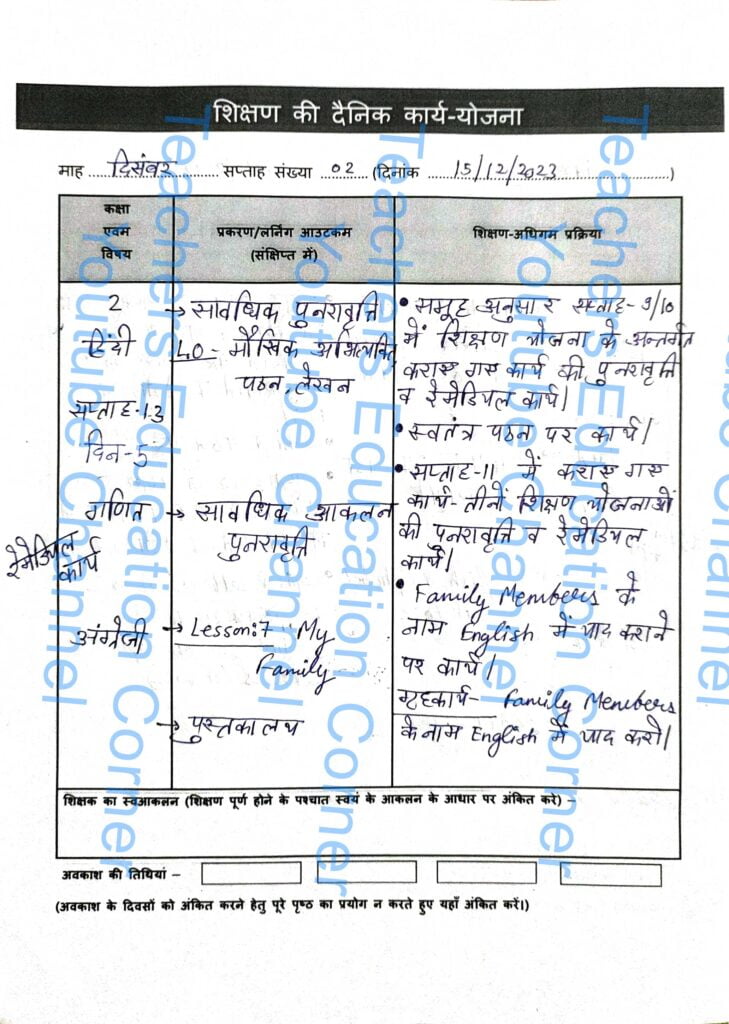 शिक्षण की दैनिक कार्य-योजना
माह दिसंबर सप्ताह संख्या 02 (दिनाक 15/12/2023)
कक्षा
एवम
विषय
प्रकरण/लर्निंग आउटकम
(संक्षिप्त में)
शिक्षण-अधिगम प्रक्रिया
2
हिंदी
सप्ताह-13
दिन-5
→ सावधिक पुनरावृत्ति
LO- मौखिक अभिव्यक्ति
पठन, लेखन
• समूह अनुसार सप्ताह-9/10
में शिक्षण योजना के अन्तर्गत
कराए गए कार्य की पुनरावृत्ति
व रेमेडियल कार्य।
• स्वतंत्र पठन पर कार्य।
रेमेडियल
कार्य
गणित
→ सावधिक आकलन
पुनरावृत्ति
• सप्ताह-11 में कराए गए
कार्य- तीनों शिक्षण योजनाओं
की पुनरावृत्ति व रेमेडियल
कार्य।
अंग्रेजी
→ Lesson:7 My
Family
→ पुस्तकालय
• Family Members के
नाम English में याद कराने
पर कार्य।
गृहकार्य- Family Members
के नाम English में याद करो।
शिक्षक का स्वआकलन (शिक्षण पूर्ण होने के पश्चात स्वयं के आकलन के आधार पर अंकित करे) –
अवकाश की तिथियां –
(अवकाश के दिवसों को अंकित करने हेतु पूरे पृष्ठ का प्रयोग न करते हुए यहाँ अंकित करें।)
Teachers Education Corner
Youtube Channel
Teachers Education Corner
Youtube Channel
Teachers Education Corner
Youtube Channel